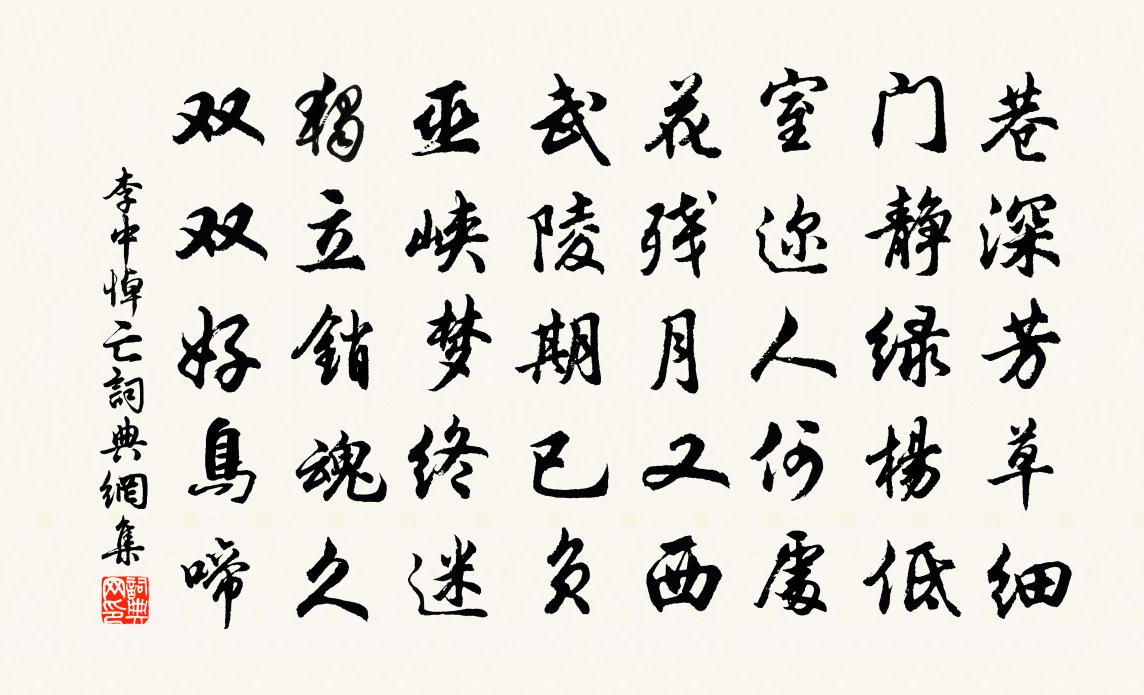 巷深芳草细
门静绿楊低
室迩人何處
花残月又西
武陵期已负
巫峡梦终迷
獨立銷魂久
双双好鳥啼
李中悼亡詞典網集
詞典網印